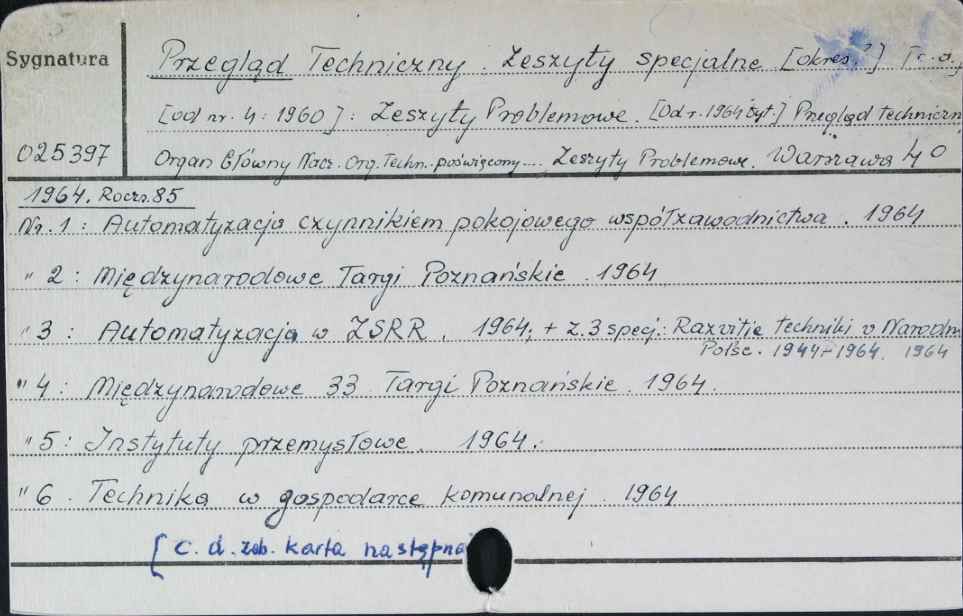 Sygnatura
Przegląd Techniczny. Zeszyty specjalne [okres?]
[od nr. 4: 1960]: Zeszyty Problemowe. [Od r. 1964 tyt.] Przegląd techniczn
025397
Organ Główny Nacz. Org. Techn. poświęcony... Zeszyty Problemowe. Warszawa 4⁰
1964. Roczn. 85
Nr. 1: Automatyzacja czynnikiem pokojowego współzawodnictwa. 1964
" 2: Międzynarodowe Targi Poznańskie. 1964
" 3: Automatyzacja w ZSRR. 1964; + z. 3 specj.: Razvitie techniki v Narodn
Polše. 1944-1964. 1964
" 4: Międzynarodowe 33 Targi Poznańskie. 1964.
" 5: Instytuty przemysłowe. 1964.
" 6. Technika w gospodarce komunalnej. 1964
[c. d. zob. karta następna